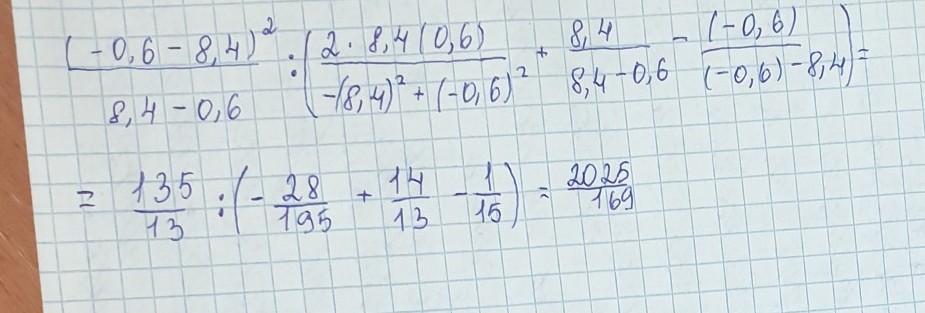 (-0,6-8,4)² / 8,4-0,6 : (2·8,4(0,6) / -(8,4)²+(-0,6)² + 8,4 / 8,4-0,6 - (-0,6) / (-0,6)-8,4) =
= 135/13 : (-28/195 + 14/13 - 1/15) = 2025/169